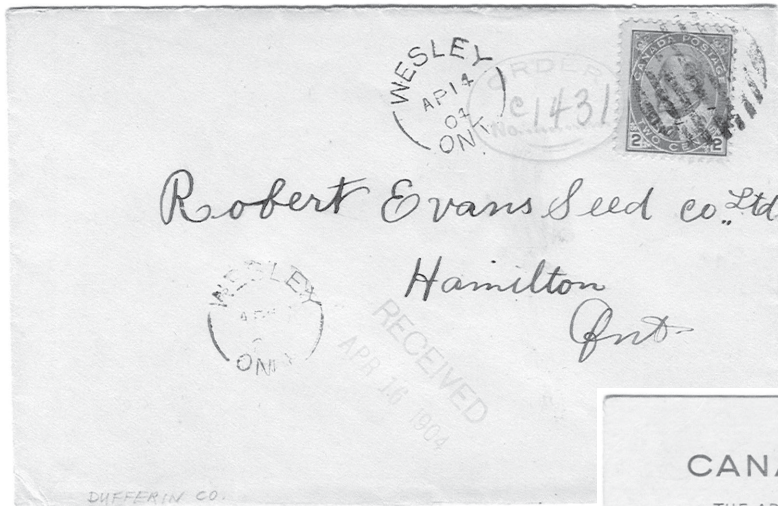 WESLEY
AP 14
04
ONT.
ORDER
c1431
CANADA POSTAGE
2 TWO CENTS 2
Robert Evans Seed Co. Ltd
Hamilton
Ont.
WESLEY
ONT.
RECEIVED
APR 16 1904
DUFFERIN CO.
CANA